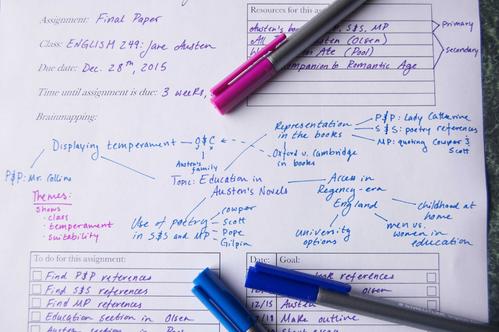 Assignment: Final Paper
Class: ENGLISH 249: Jane Austen
Due date: Dec. 28th, 2015
Time until assignment is due: 3 weeks,
Brainmapping:
Resources for this as
Austen's bo S&S, MP
All sten (Olsen)
Ate (Pool)
ompanion to Romantic Age
primary
secondary
Displaying temperament
O&C
Austen's family
P&P: Mr. Collins
Representation in the books
P&P: Lady Catherine
S&S: poetry references
MP: quoting Cowper & Scott
Oxford v. Cambridge in books
Topic: Education in Austen's Novels
Themes:
Shows
- class
- temperament
- suitability
Use of poetry in S&S and MP
Cowper
Scott
Pope
Gilpin
Access in Regency-era England
university options
men vs. women in education
childhood at home
To do for this assignment:
Find P&P references
Find S&S references
Find MP references
Education section in Olsen
Austen section in
Date: Goal:
ook references
olsen
12/15 Austen
Make outline